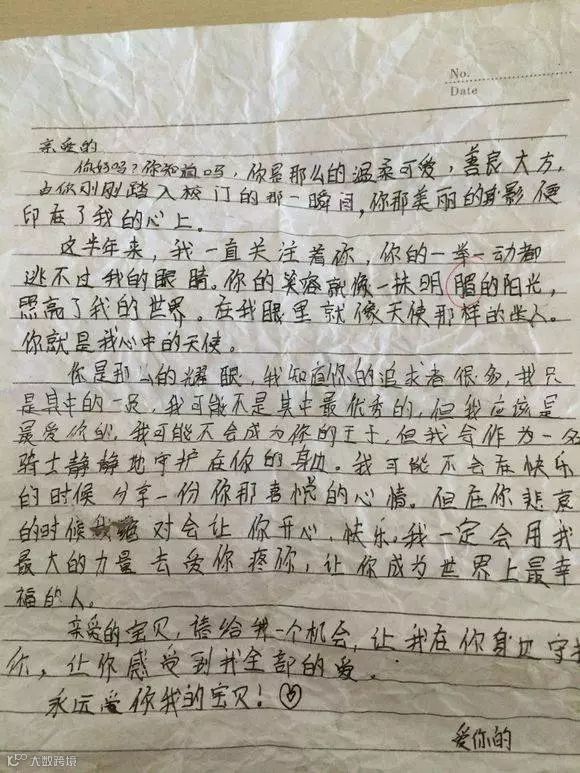 No.
Date
亲爱的
你好吗？你知道吗，你是那么的温柔可爱，善良大方，
当你刚刚踏入校门的那一瞬间，你那美丽的身影便
印在了我的心上。
这半年来，我一直关注着你，你的一举一动都
逃不过我的眼睛。你的笑容就像一抹明腽的阳光，
照亮了我的世界。在我眼里就像天使那样的坐人。
你就是我心中的天使。
你是那么的耀眼，我知道你的追求者很多，我只
是其中的一员，我可能不是其中最优秀的，但我应该是
最爱你的，我可能不会成为你的王子，但我会作为一名
骑士静静地守护在你的身边。我可能不会在快乐
的时候分享一份你那喜悦的心情。但在你悲哀
的时候我绝对会让你开心、快乐。我一定会用我
最大的力量去爱你疼你，让你成为世界上最幸
福的人。
亲爱的宝贝，请给我一个机会，让我在你身边守
你，让你感受到我全部的爱。
永远爱你我的宝贝！
爱你的
大数跨境